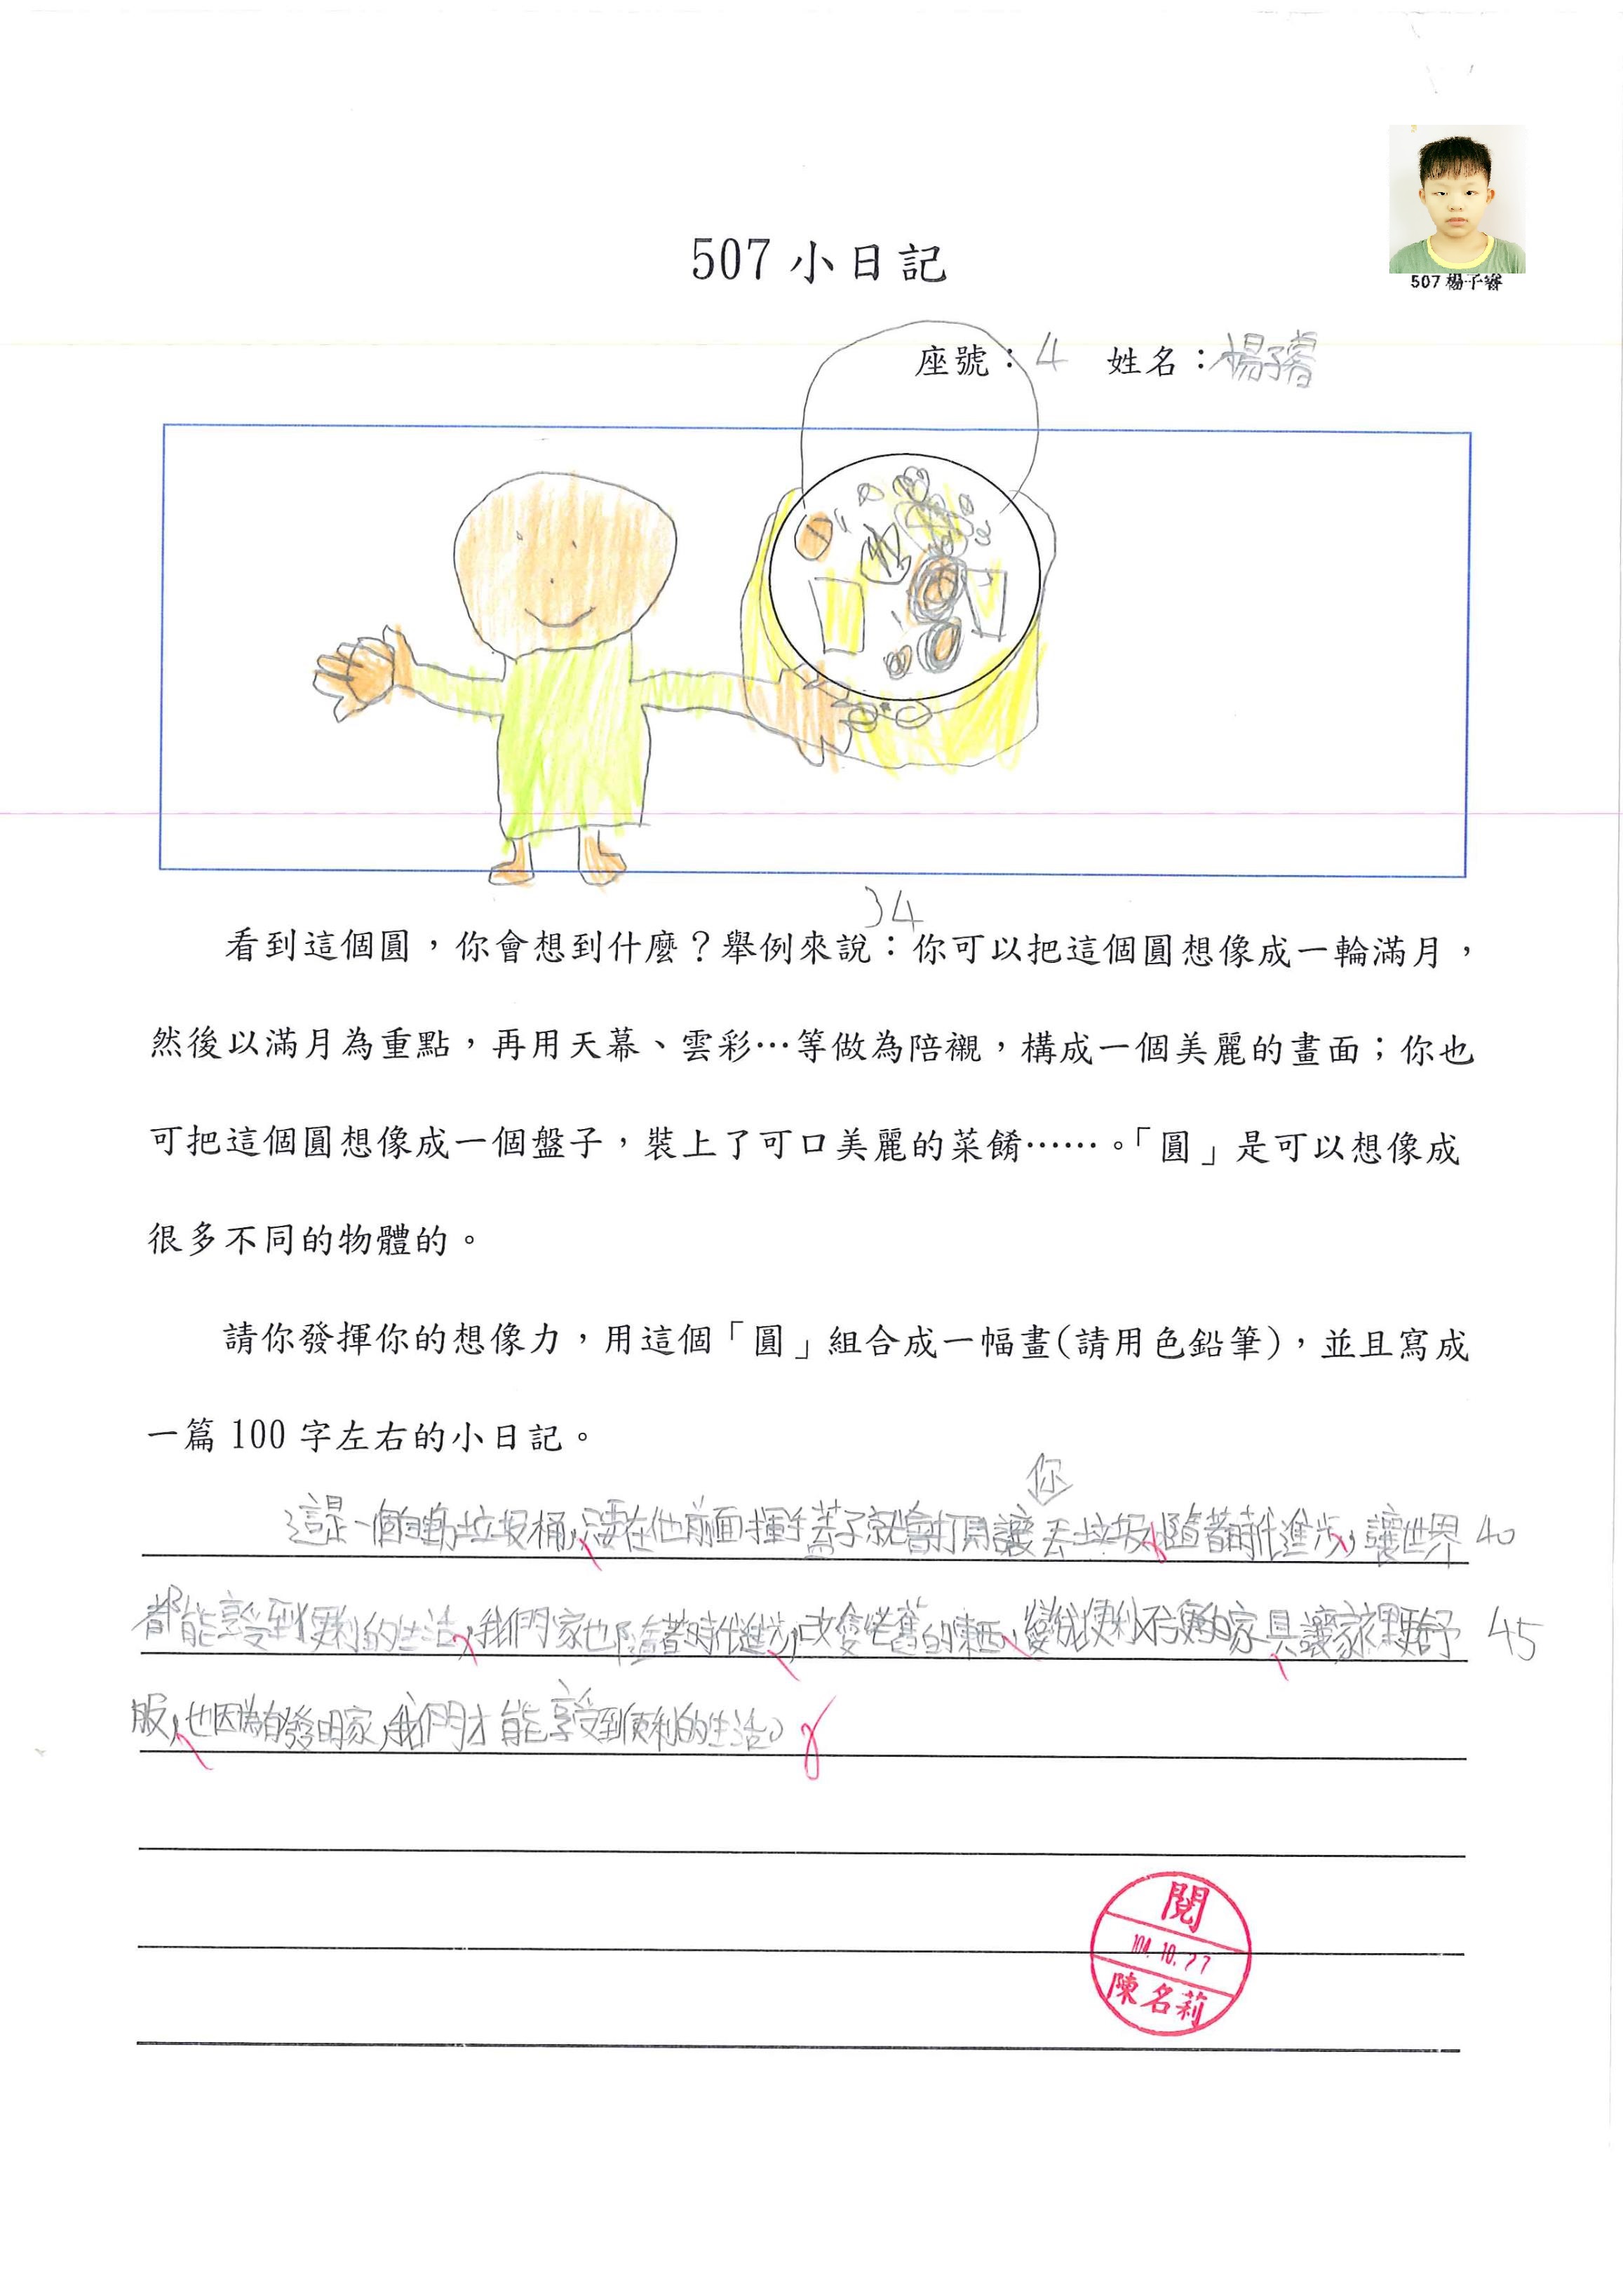 507 楊子睿
507 小日記
座號：4 姓名：楊子睿
34
看到這個圓，你會想到什麼？舉例來說：你可以把這個圓想像成一輪滿月，
然後以滿月為重點，再用天幕、雲彩…等做為陪襯，構成一個美麗的畫面；你也
可把這個圓想像成一個盤子，裝上了可口美麗的菜餚……。「圓」是可以想像成
很多不同的物體的。
請你發揮你的想像力，用這個「圓」組合成一幅畫(請用色鉛筆)，並且寫成
一篇 100 字左右的小日記。
你
這是一個自動垃圾桶，只要在他前面揮手蓋子就會打開讓丟垃圾，隨著時代進步，讓世界 40
都能享受到便利的生活，我們家也隨著時代進步，改變老舊的東西，變成便利不佔的家具讓家裡更舒 45
服，也因為有發明家，我們才能享受到便利的生活。
閱
104.10.27
陳名莉